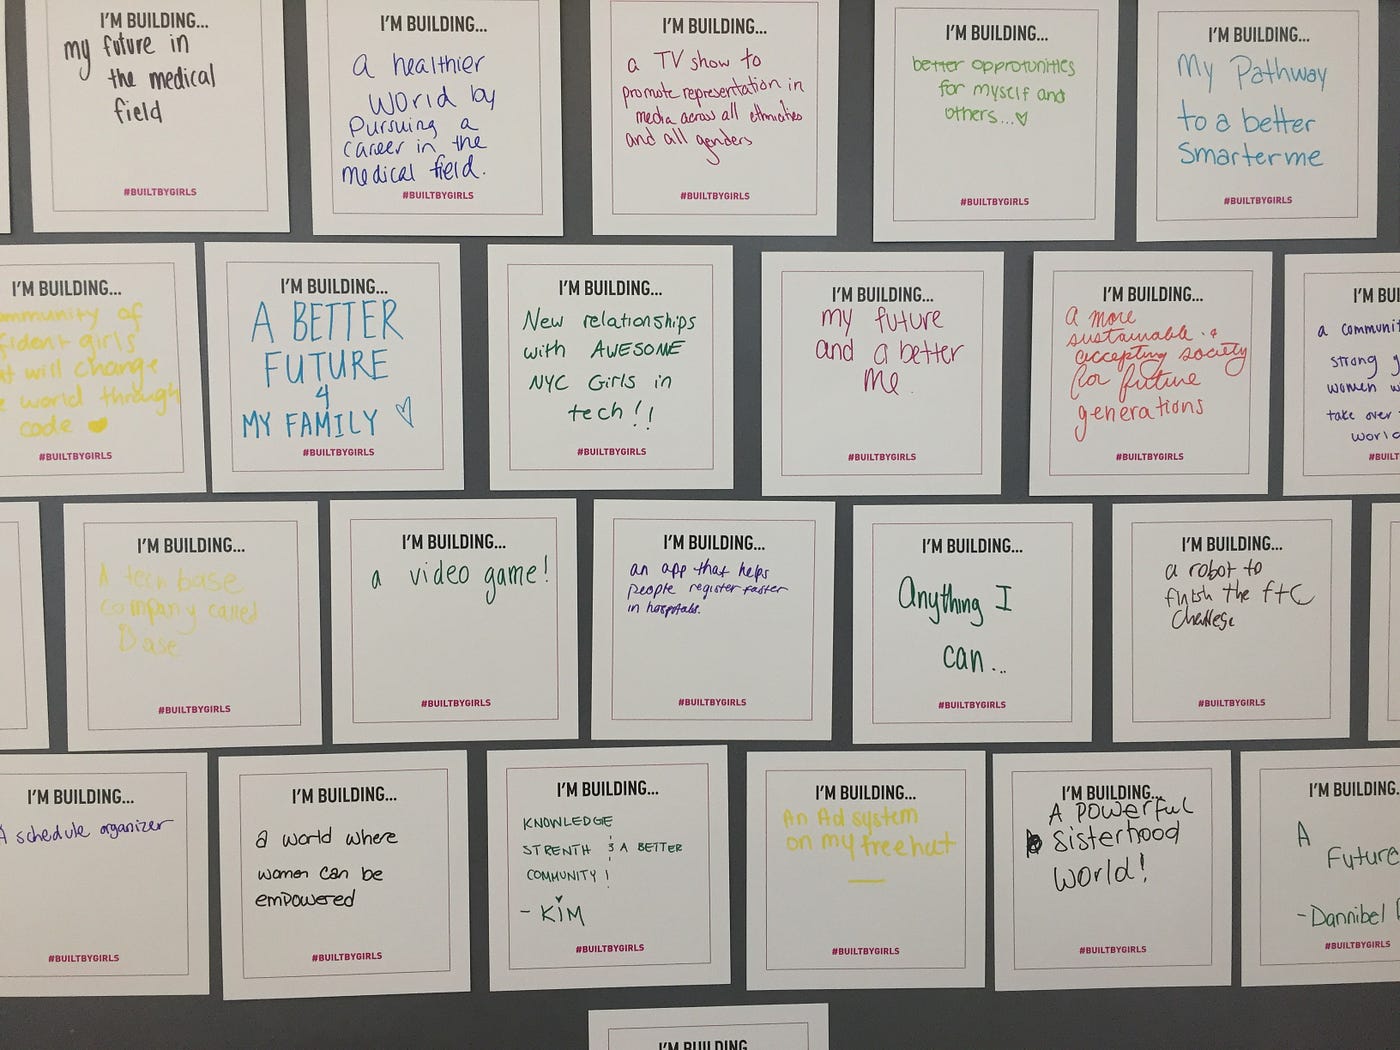 I'M BUILDING...
my future in
the medical
field
#BUILTBYGIRLS
I'M BUILDING...
a healthier
world by
Pursuing a
career in the
medical field.
#BUILTBYGIRLS
I'M BUILDING...
a TV show to
promote representation in
media across all ethnicities
and all genders
#BUILTBYGIRLS
I'M BUILDING...
better opprotunities
for myself and
others...
#BUILTBYGIRLS
I'M BUILDING...
My Pathway
to a better
smarter me
#BUILTBYGIRLS
I'M BUILDING...
ommunity of
fident girls
at will change
e world through
code
#BUILTBYGIRLS
I'M BUILDING...
A BETTER
FUTURE
4
MY FAMILY
#BUILTBYGIRLS
I'M BUILDING...
New relationships
with AWESOME
NYC Girls in
tech!!
#BUILTBYGIRLS
I'M BUILDING...
my future
and a better
me.
#BUILTBYGIRLS
I'M BUILDING...
a more
sustainable &
accepting society
for future
generations
#BUILTBYGIRLS
I'M BUI
a communit
strong g
women w
take over
worl
#BUILT
I'M BUILDING...
A tech base
company called
Base
#BUILTBYGIRLS
I'M BUILDING...
a video game!
#BUILTBYGIRLS
I'M BUILDING...
an app that helps
people register faster
in hospitals.
#BUILTBYGIRLS
I'M BUILDING...
Anything I
can...
#BUILTBYGIRLS
I'M BUILDING...
a robot to
finish the ftC
Challege
#BUILTBYGIRLS
I'M BUILDING...
A schedule organizer
#BUILTBYGIRLS
I'M BUILDING...
a world where
women can be
empowered
#BUILTBYGIRLS
I'M BUILDING...
KNOWLEDGE
STRENTH & A BETTER
COMMUNITY!
- KIM
#BUILTBYGIRLS
I'M BUILDING...
An Ad system
on my freehat
#BUILTBYGIRLS
I'M BUILDING...
A powerful
sisterhood
world!
#BUILTBYGIRLS
I'M BUILDING.
A
Future
- Dannibel
#BUILTBYGIRLS
I'M BUILDING